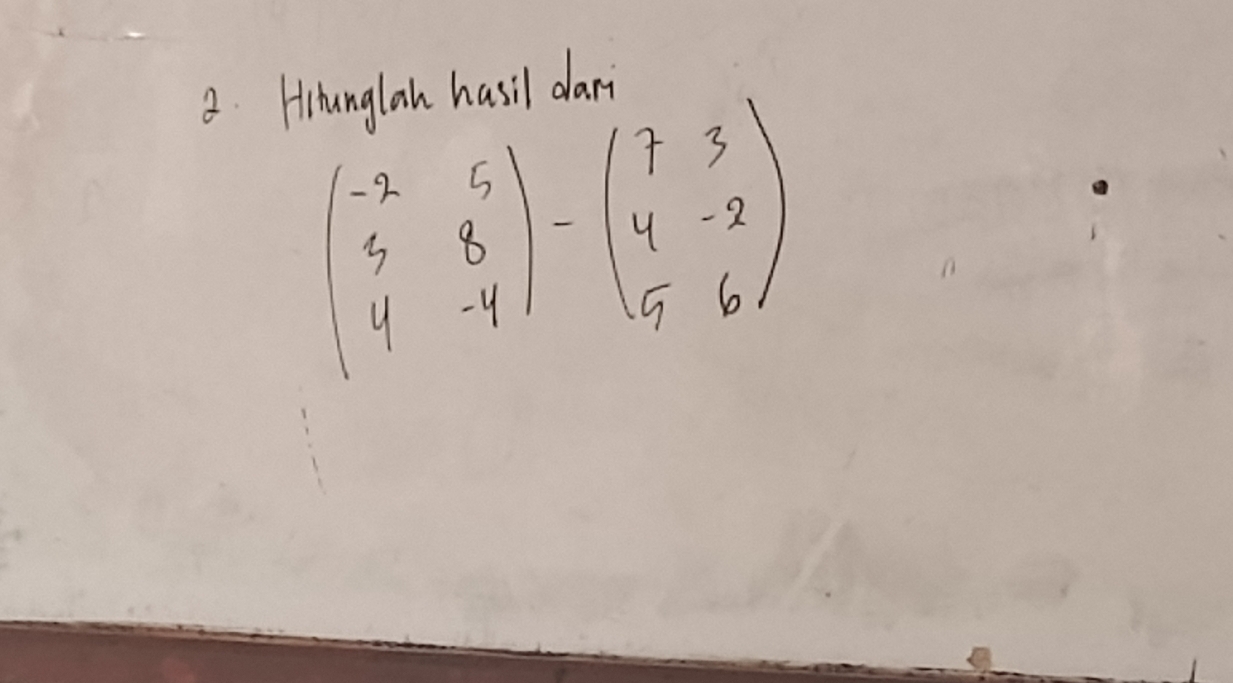 2. Hitunglah hasil dari
(-2 5) - (7 3)
(3 8) (4 -2)
(4 -4) (5 6)